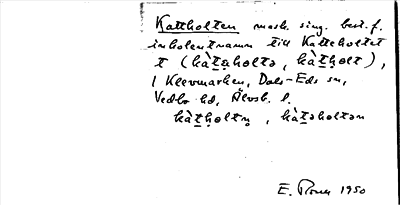 Kattholten mask. sing. best. f.
inbolentnamn till Katteholtet
t (kàt̲a̲holtə, kàt̲holt),
i Klevmarken, Dals-Eds sn,
Vedbo hd, Älvsb. l.
kàt̲holtn̥, kàt̲əholtən
E. 1950